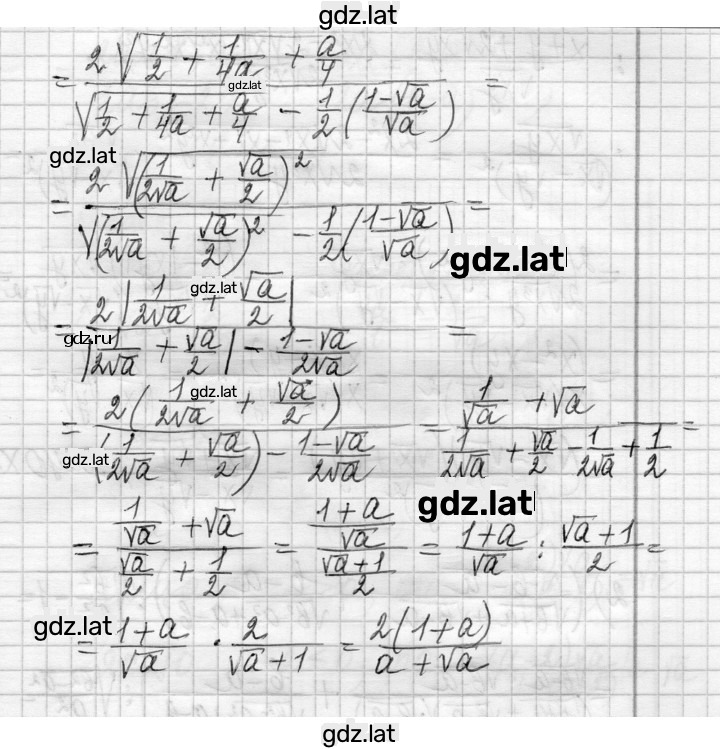 gdz.lat
= (2√(1/2 + 1/4a + a/4)) / (√(1/2 + 1/4a + a/4) - 1/2((1-√a)/√a)) =
gdz.lat
gdz.lat
= (2√((1/2√a + √a/2)²)) / (√((1/2√a + √a/2)²) - 1/2((1-√a)/√a)) =
gdz.lat
gdz.lat
= (2|1/2√a + √a/2|) / (|1/2√a + √a/2| - (1-√a)/2√a) =
gdz.ru
gdz.lat
= (2(1/2√a + √a/2)) / ((1/2√a + √a/2) - (1-√a)/2√a) = (1/√a + √a) / (1/2√a + √a/2 - 1/2√a + 1/2) =
gdz.lat
gdz.lat
= (1/√a + √a) / (√a/2 + 1/2) = ((1+a)/√a) / ((√a+1)/2) = (1+a)/√a : (√a+1)/2 =
gdz.lat
= (1+a)/√a · 2/(√a+1) = 2(1+a)/(a+√a)
gdz.lat